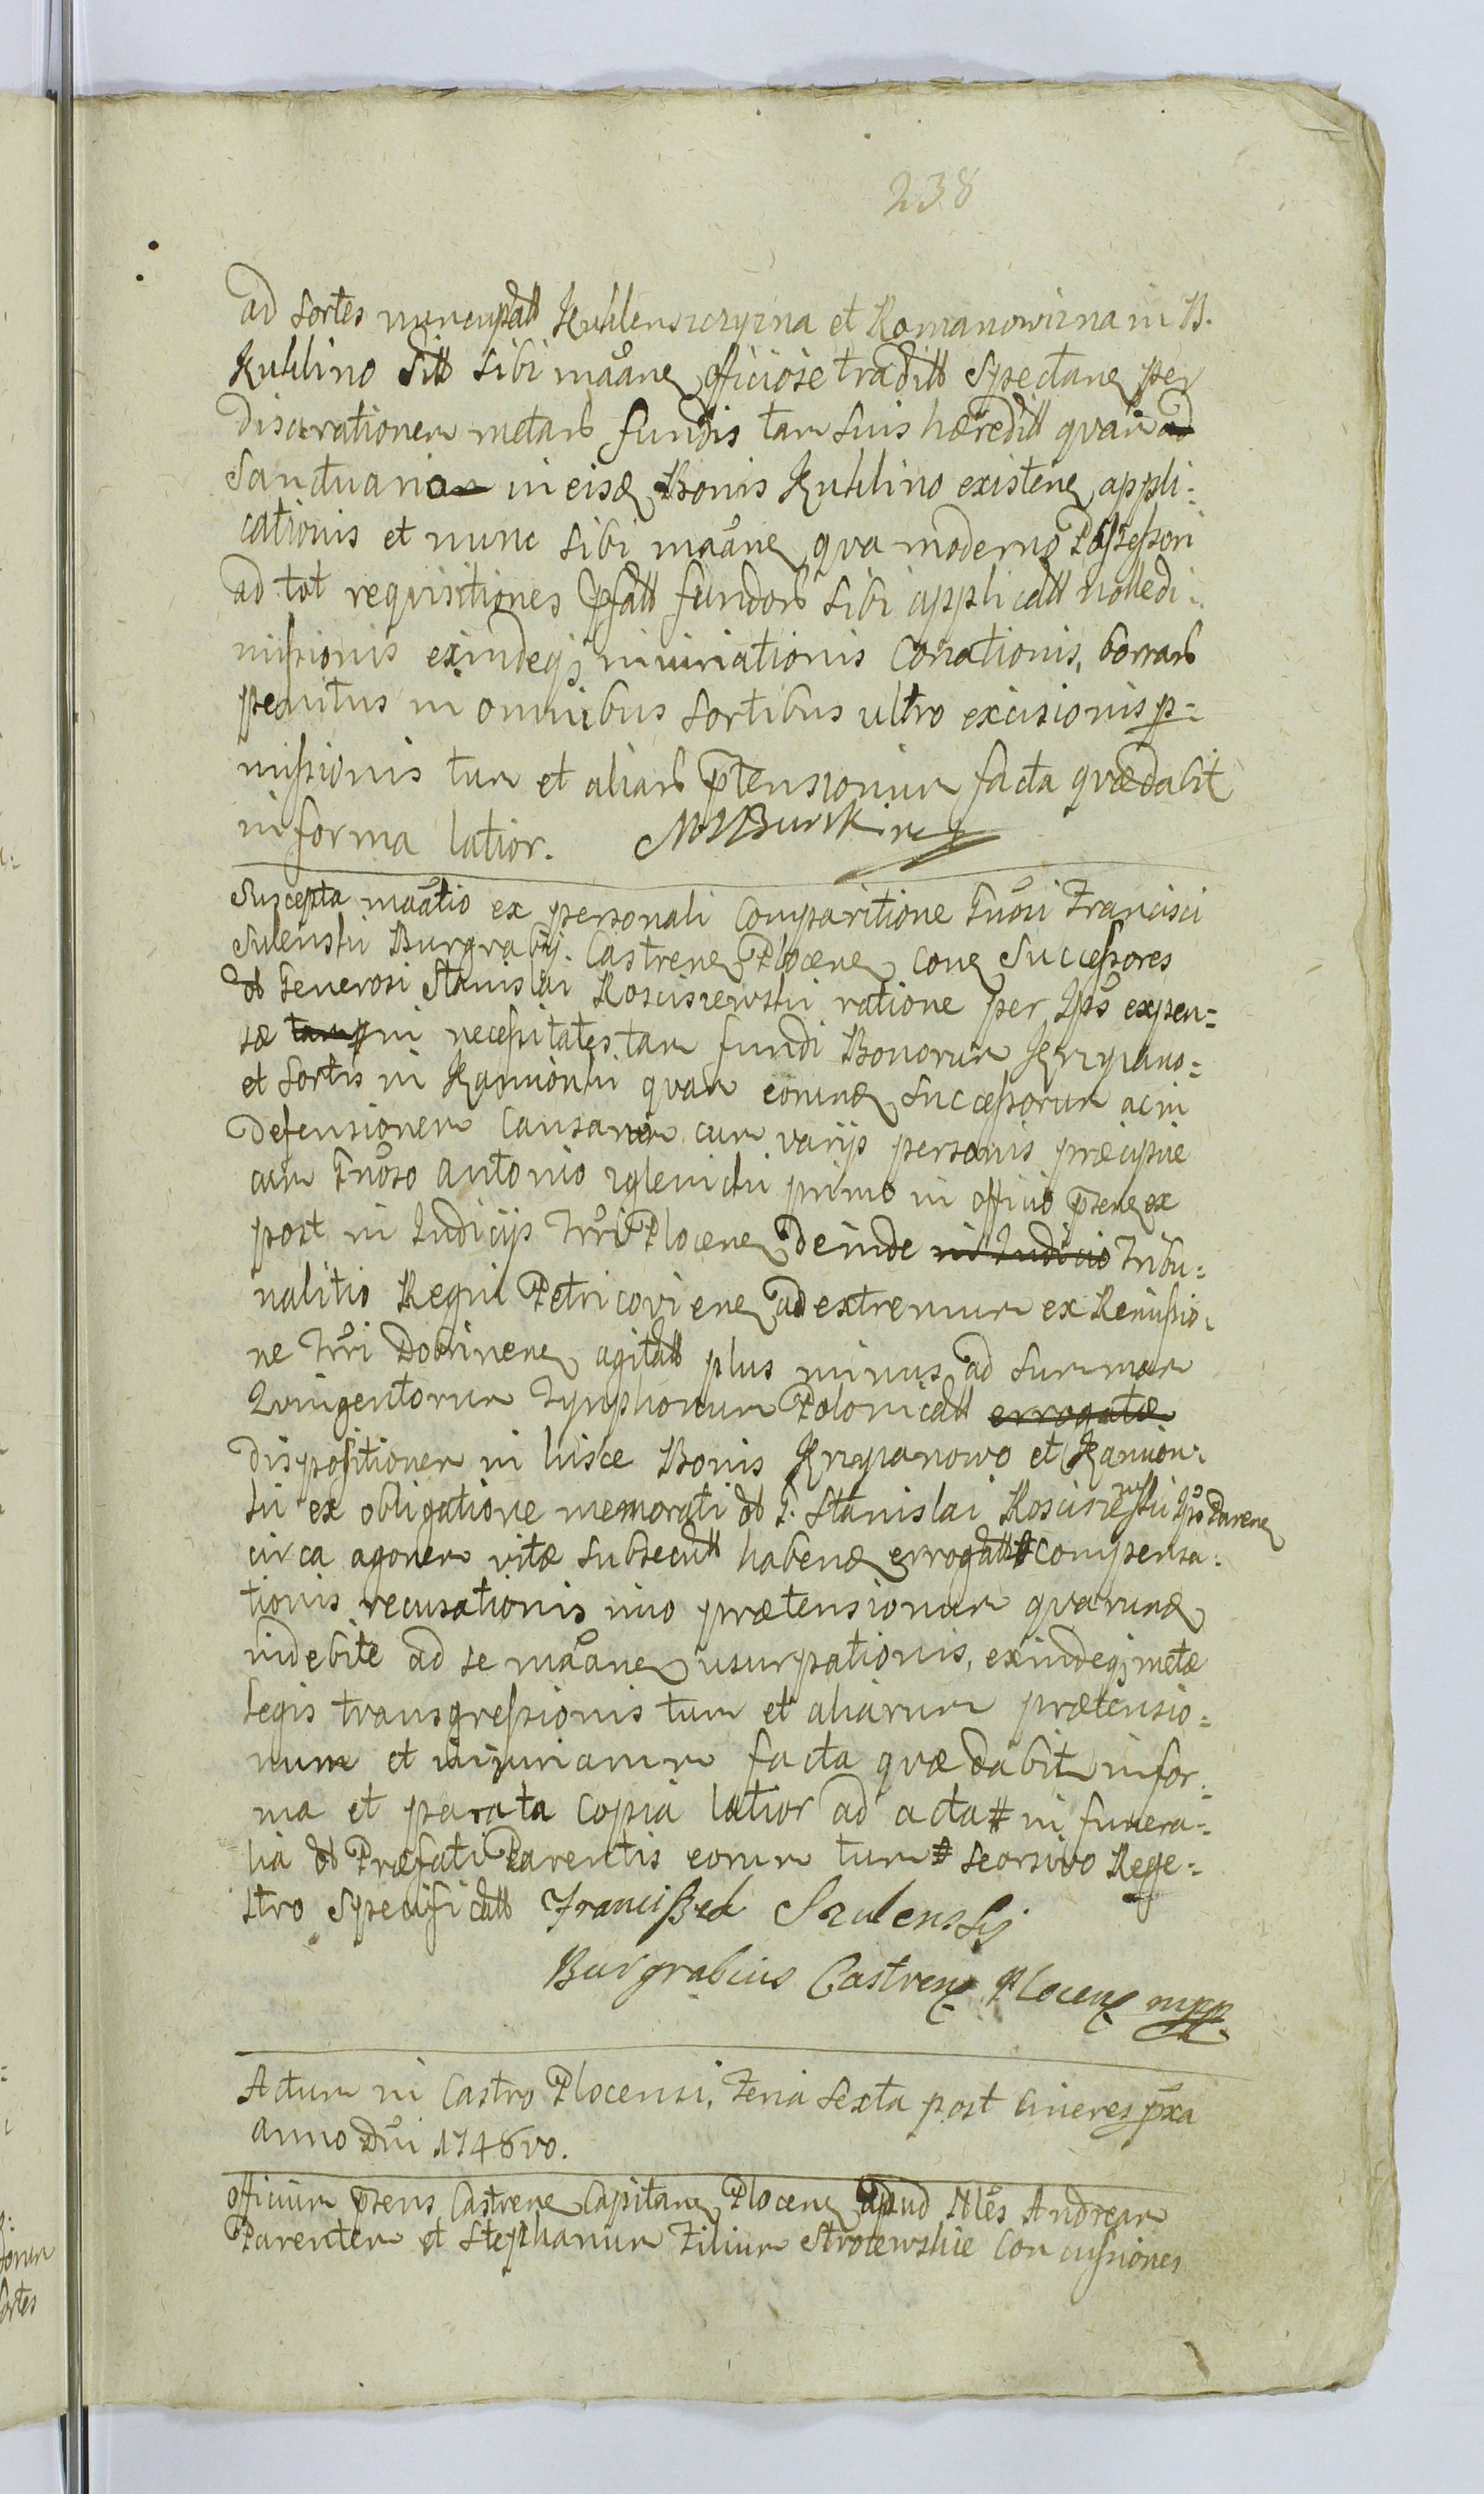 238
ad Sortes nuncupatt Kuklensczyzna et Romanowizna in B.
Kuklino sitt sibi maane officiose traditt spectane per
disarationem metarb fundis tam suis hæreditt quam ad
Sanctuarion in eisd Bonis Kuklino existene appli:
cationis et nunc sibi maane qva moderno Possessori
ad tot requisitiones Pfatt fundorb sibi applicatt nolledi:
missionis exindeq iniuriationis Conationis, borrarb
penitus in omnibus Sortibus ultro excisionis p:
missionis tum et aliarb ptensionum facta quædabit
in forma latior.
Suscepta maatio ex personali Comparitione Gnosi Francisci
Sulenski Burgrabij Castrene Plocene cone Successores
ob Generosi Stanislai Kosciszewski ratione per Ipso expen:
sæ tam in necessitates tam fundi Bonorum Krzyzano:
et Sortis in Kamionki qvam eorund Successorum ac in
defensionem Causarum cum varijs personis præcipue
cum Gnoso Antonio Zglenicki primo in officio psene ex
post in Judicijs Trri Plocene deinde in Judicio Tribu:
nalitio Regni Petricoviene ad extremum ex Remissio:
ne Trri Dobrinene agitatt plus minus ad Summam
Quingentorum Tynphonum Polonicatt errogatæ
dispositionem in hisce Bonis Krzyzanowo et Kamion:
ki ex obligatione memorati ob G. Stanislai Kosciszewski Ipso Parene
circa agonem vitæ subsecutt habend errogatt # compensa:
tionis recusationis imo prætensionum qvarund
indebite ad se maane usurpationis, exindeq metæ
legis transgressionis tum et aliarum prætensio:
num et injuriarum facta quæ dabit in for:
ma et parata Copia latior ad acta # in funera:
lia ob Præfati Parentis eorum tum # seorsivo Rege:
stro specificatt Franciszek Szulenskij
Burgrabius Castrens Plocens mpp
Actum in Castro Plocensi, Feria Sexta post Cineres pxa
Anno Dni 1748vo.
Officium psens Castrene Capitane Plocene apud Nles Andream
Parentem et Stephanum Filium Strocewskie Concussiones